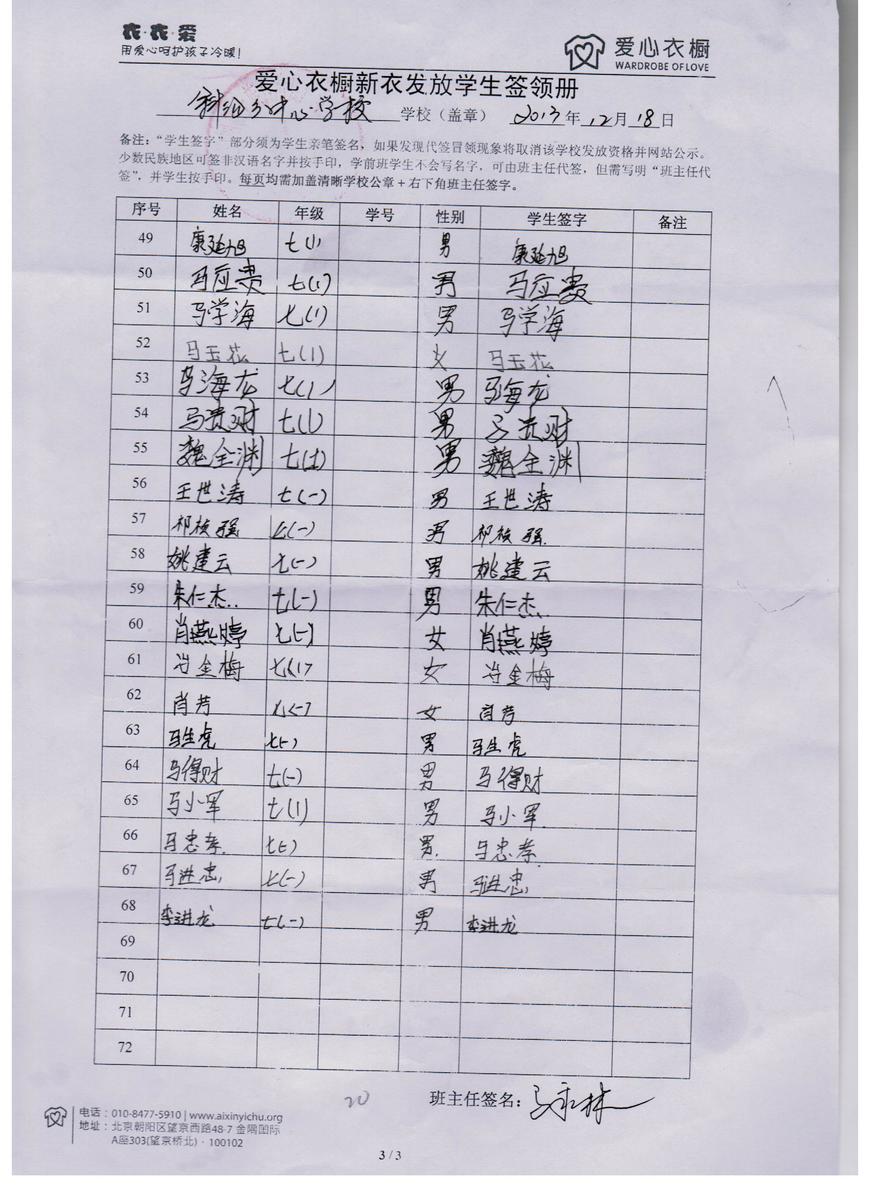 衣·衣·爱
用爱心呵护孩子冷暖!
爱心衣橱
WARDROBE OF LOVE
爱心衣橱新衣发放学生签领册
中心学校 学校(盖章) 2013年12月18日
备注:“学生签字”部分须为学生亲笔签名,如果发现代签冒领现象将取消该学校发放资格并网站公示。
少数民族地区可签非汉语名字并按手印,学前班学生不会写名字,可由班主任代签,但需写明“班主任代
签”,并学生按手印。每页均需加盖清晰学校公章+右下角班主任签字。
序号 姓名 年级 学号 性别 学生签字 备注
49 康延旭 七(1) 男 康延旭
50 马应贵 七(1) 男 马应贵
51 马学海 七(1) 男 马学海
52 马玉花 七(1) 女 马玉花
53 马海龙 七(1) 男 马海龙
54 马贵财 七(1) 男 马贵财
55 魏全渊 七(1) 男 魏全渊
56 王世涛 七(一) 男 王世涛
57 祁 强 七(一) 男 祁 强
58 姚建云 七(一) 男 姚建云
59 朱仁杰 七(一) 男 朱仁杰
60 肖燕婷 七(一) 女 肖燕婷
61 金梅 七(1) 女 金梅
62 肖芳 七(一) 女 肖芳
63 马生虎 七(一) 男 马生虎
64 马得财 七(一) 男 马得财
65 马小军 七(1) 男 马小军
66 马忠孝 七(一) 男 马忠孝
67 马进忠 七(一) 男 马进忠
68 李进龙 七(一) 男 李进龙
69
70
71
72
20
班主任签名:马 林
电话:010-8477-5910 | www.aixinyichu.org
地址:北京朝阳区望京西路48-7 金隅国际
A座303(望京桥北)·100102
3 / 3